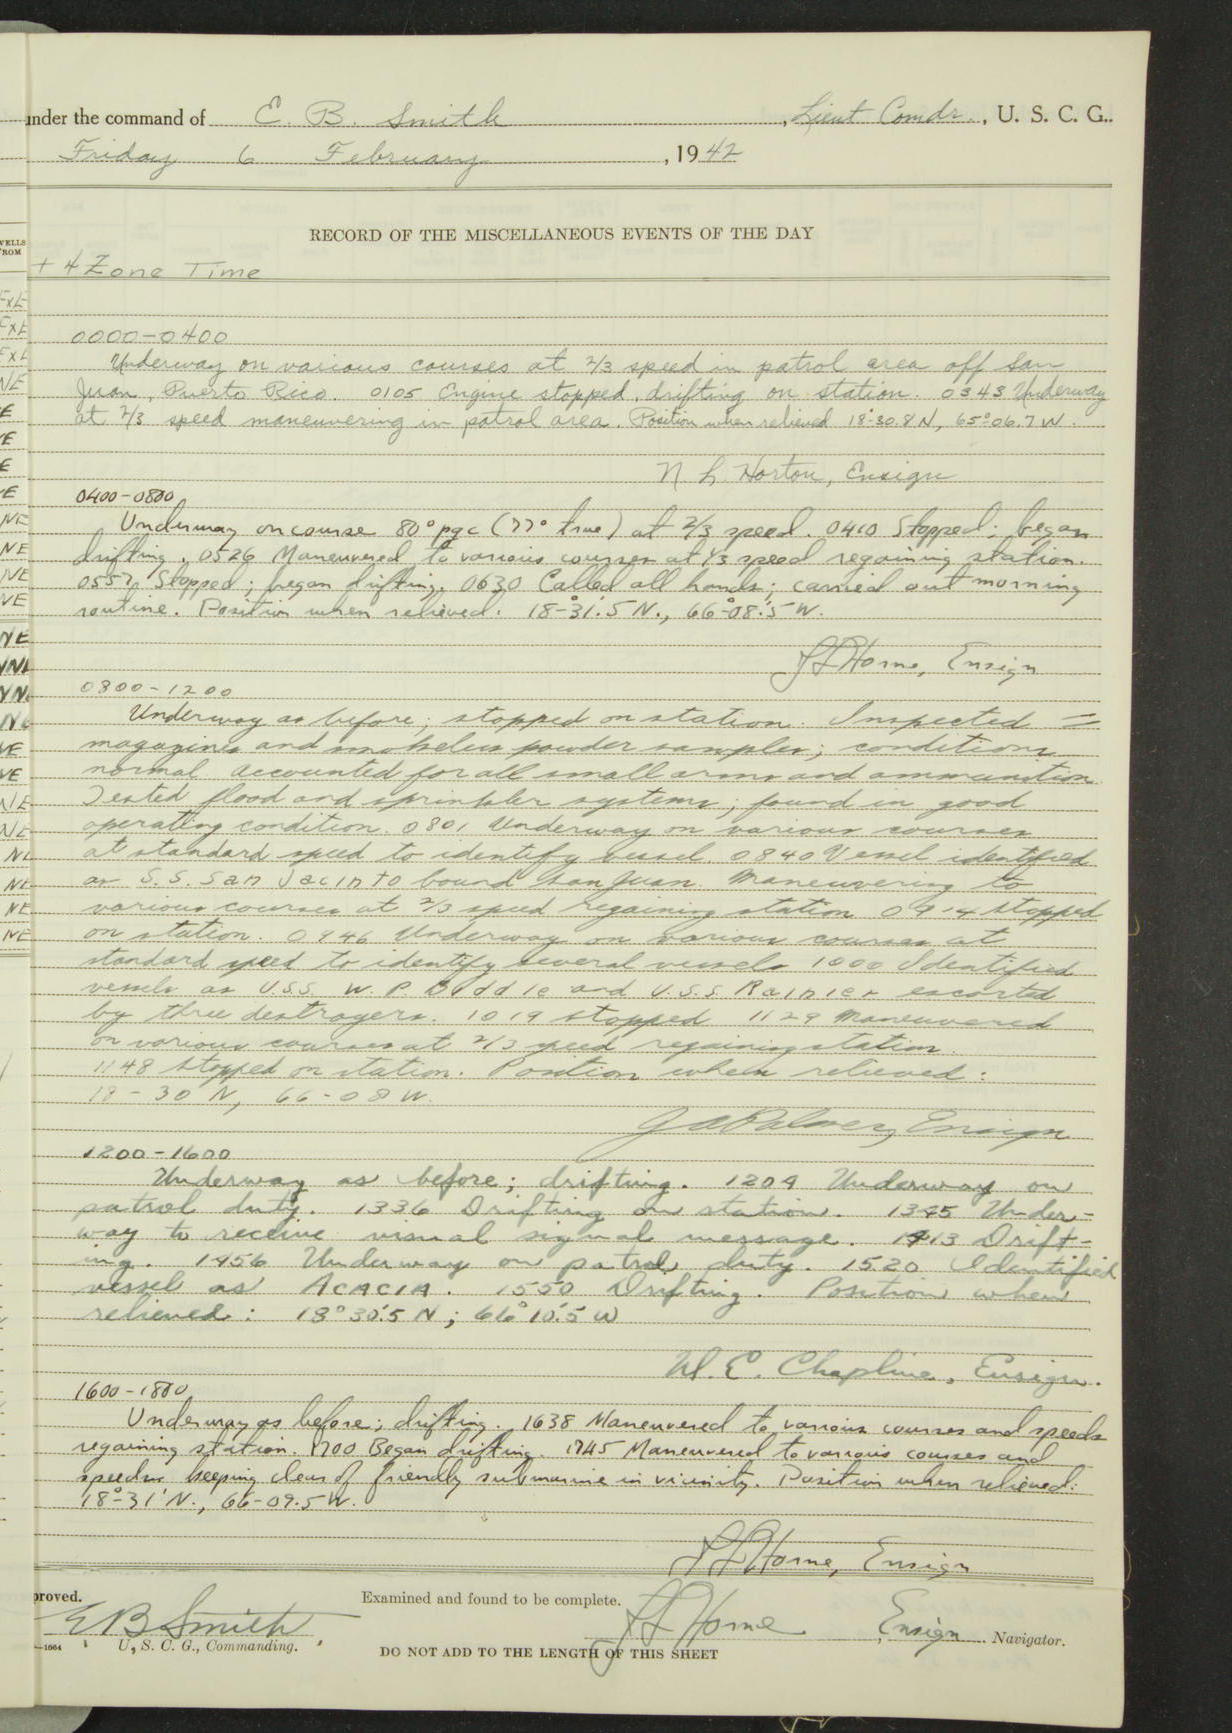 under the command of E. B. Smith, Lieut Comdr., U. S. C. G..
Friday 6 February, 1942
RECORD OF THE MISCELLANEOUS EVENTS OF THE DAY
+ 4 Zone Time
0000-0400
Underway on various courses at 2/3 speed in patrol area off San
Juan, Puerto Rico. 0105 Engine stopped, drifting on station. 0343 Underway
at 2/3 speed maneuvering in patrol area. Position when relieved 18°-30.8 N, 65°-06.7 W.
N L Horton, Ensign
0400-0800
Underway on course 80° pgc (77° true) at 2/3 speed. 0410 Stopped; began
drifting. 0526 Maneuvered to various courses at 1/3 speed regaining station.
0557 Stopped; began drifting. 0630 Called all hands; carried out morning
routine. Position when relieved: 18°-31.5 N., 66°-08.5 W.
Horne, Ensign
0800-1200
Underway as before; stopped on station. Inspected =
magazines and smokeless powder samples; conditions
normal accounted for all small arms and ammunition
Tested flood and sprinkler systems; found in good
operating condition. 0801 Underway on various courses
at standard speed to identify vessel. 0840 Vessel identified
as S.S. San Jacinto bound San Juan. Maneuvering to
various courses at 2/3 speed regaining station 0914 stopped
on station. 0946 Underway on various courses at
standard speed to identify several vessels 1000 Identified
vessels as U.S.S. W. P. Biddle and U.S.S. Rainier escorted
by three destroyers. 1019 stopped 1129 Maneuvered
on various courses at 2/3 speed regaining station.
1148 Stopped on station. Position when relieved:
18-30 N, 66-08 W.
Palmer, Ensign
1200-1600
Underway as before; drifting. 1204 Underway on
patrol duty. 1336 Drifting on station. 1345 Under-
way to receive visual signal message. 1413 Drift-
ing. 1456 Underway on patrol duty. 1520 Identified
vessel as ACACIA. 1550 Drifting. Position when
relieved: 18°30'.5 N; 66°10'.5 W
W. E. Chapline, Ensign.
1600-1800
Underway as before; drifting. 1638 Maneuvered to various courses and speeds
regaining station. 1700 Began drifting 1745 Maneuvered to various courses and
speeds keeping clear of friendly submarine in vicinity. Position when relieved:
18°-31' N., 66-09.5 W.
Horne, Ensign
proved. Examined and found to be complete.
E B Smith Horne Ensign Navigator.
U. S. C. G., Commanding.
DO NOT ADD TO THE LENGTH OF THIS SHEET